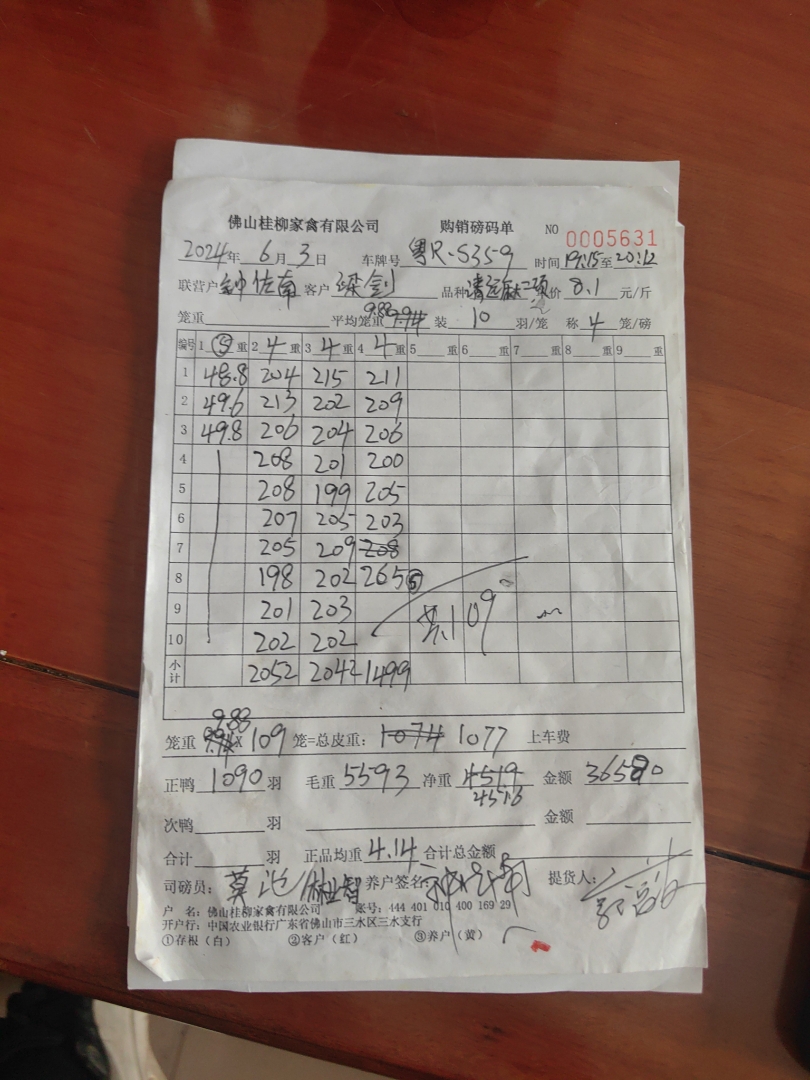 佛山桂柳家禽有限公司 购销磅码单 NO 0005631
2024年 6月 3日 车牌号 粤R·S359 时间 19:15至20:12
联营户 钟佐南 客户 梁剑 品种 清远麻二项 价 8.1 元/斤
笼重 平均笼重 9.88 装 10 羽/笼 称 4 笼/磅
编号 1 ⑤ 重 2 4 重 3 4 重 4 4 重 5 重 6 重 7 重 8 重 9 重
1 48.8 204 215 211
2 49.6 213 202 209
3 49.8 206 204 206
4 208 201 200
5 208 199 205
6 207 205 203
7 205 209 208
8 198 202 265 ⑤
9 201 203 共109
10 202 202
小计 2052 2042 1499
9.88
笼重 X 109 笼=总皮重: 1074 1077 上车费
正鸭 1090 羽 毛重 5593 净重 4519 金额 36580
4516
次鸭 羽 金额
合计 羽 正品均重 4.14 合计总金额
司磅员: 莫 养户签名: 提货人:
户 名: 佛山桂柳家禽有限公司 账号: 444 401 010 400 169 29
开户行: 中国农业银行广东省佛山市三水区三水支行
①存根(白) ②客户(红) ③养户(黄)